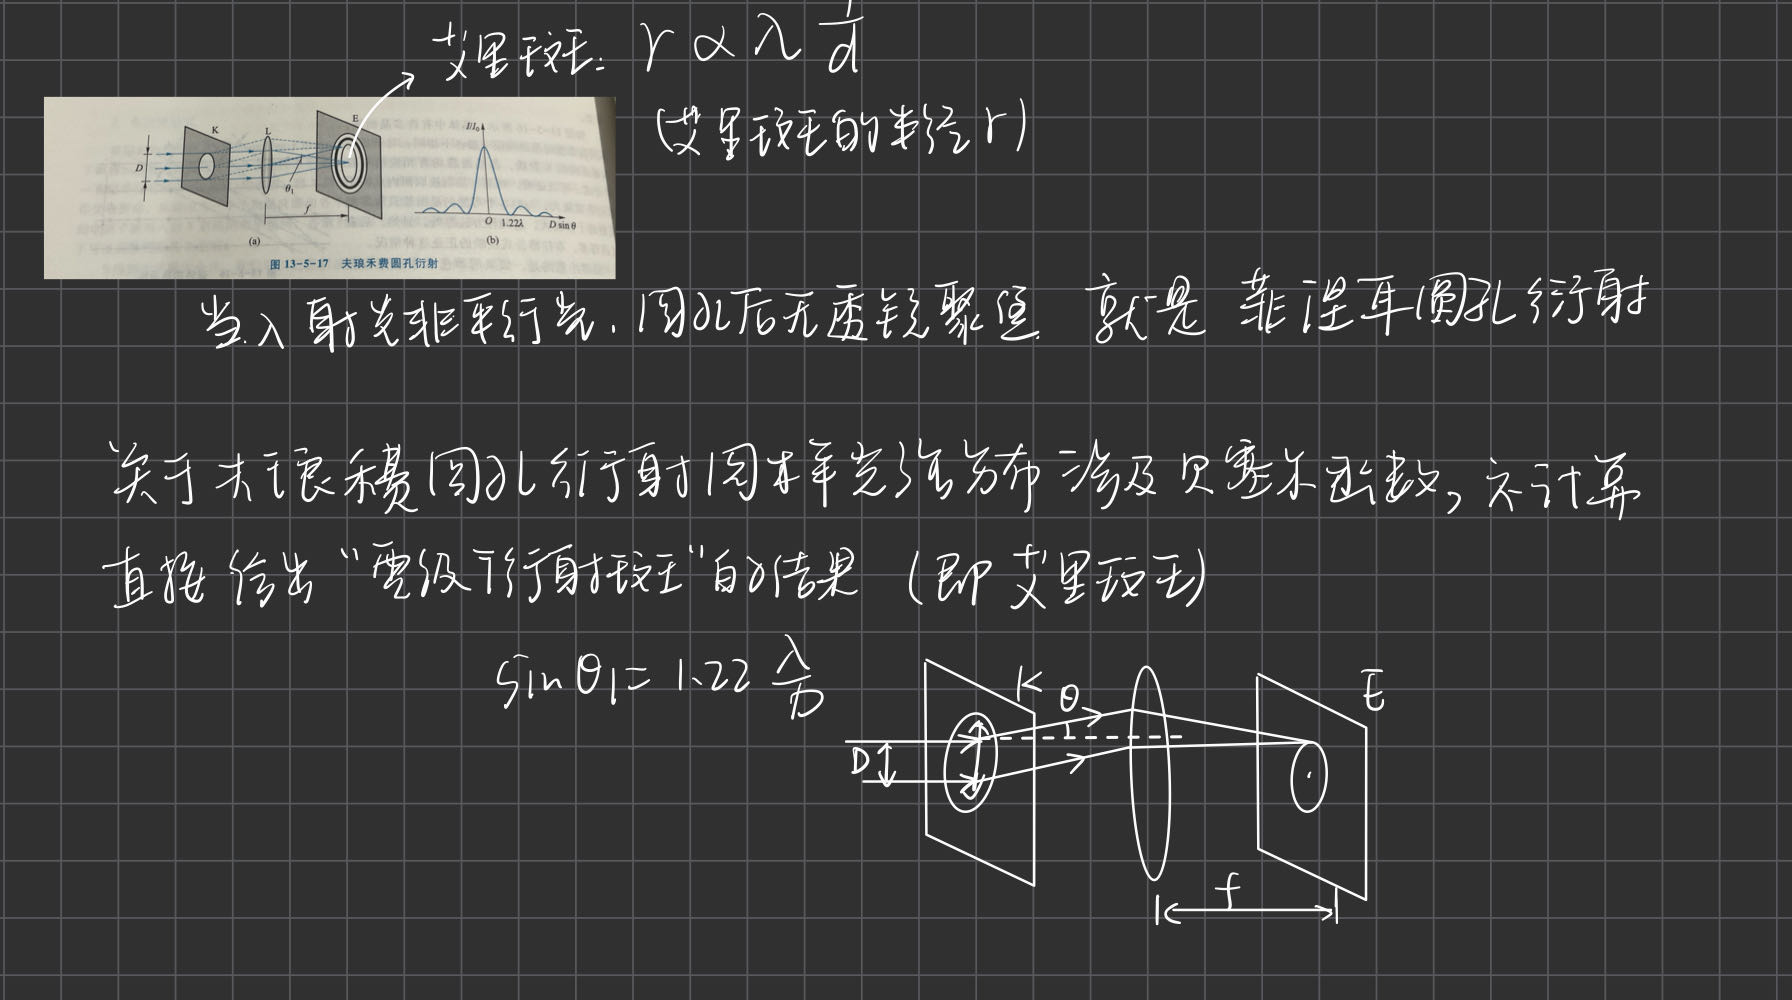 艾里斑: r ∝ λ 1/d
(艾里斑的半径 r)
K L E
D θ₁ f
I/I₀
O 1.22λ D sin θ
(a) (b)
图 13-5-17 夫琅禾费圆孔衍射
当入射光非平行光, 圆孔后无透镜聚焦 就是 菲涅耳圆孔衍射
关于夫琅禾费圆孔衍射图样光强分布涉及贝塞尔函数, 不计算
直接给出“零级衍射斑”的结果 (即艾里斑)
sinθ₁ = 1.22 λ/D
K θ E
D
f